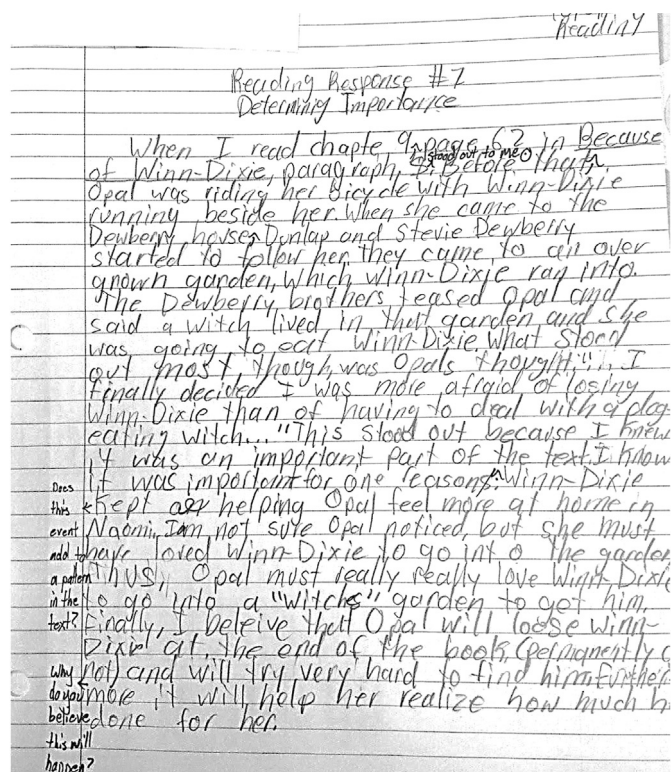 Reading
Reading Response #7
Determinig Importance
When I read chapte 9, page 62 in Because
of Winn-Dixie, paragraph stood out to me. Before that,
Opal was riding her bicycle with Winn-Dixie
running beside her. When she came to the
Dewberry house, Dunlap and Stevie Dewberry
started to follow her. they came to an over
grown garden, which Winn-Dixie ran into.
The Dewberry brothers teased Opal and
said a witch lived in that garden and she
was going to eat Winn-Dixie. What stood
out most, though, was Opals thought, "... I
finally decided I was more afraid of losing
Winn-Dixie than of having to deal with a dog-
eating witch..." This stood out because I knew
it was an important part of the text. I know
it was important for one reasons. Winn-Dixie
kept helping Opal feel more at home in
Naomi, I am not sure Opal noticed, but she must
have loved Winn-Dixie to go into the garden
Thus, Opal must really really love Winn-Dixie
to go into a "Witchs" garden to get him.
Finally, I beleive that Opal will loose Winn-
Dixie at the end of the book, (permanently
not) and will try very hard to find him. Further
more it will help her realize how much h
done for her.
Does
this
event
add to
a pattern
in the
text?
Why
do you
believe
this will
happen?